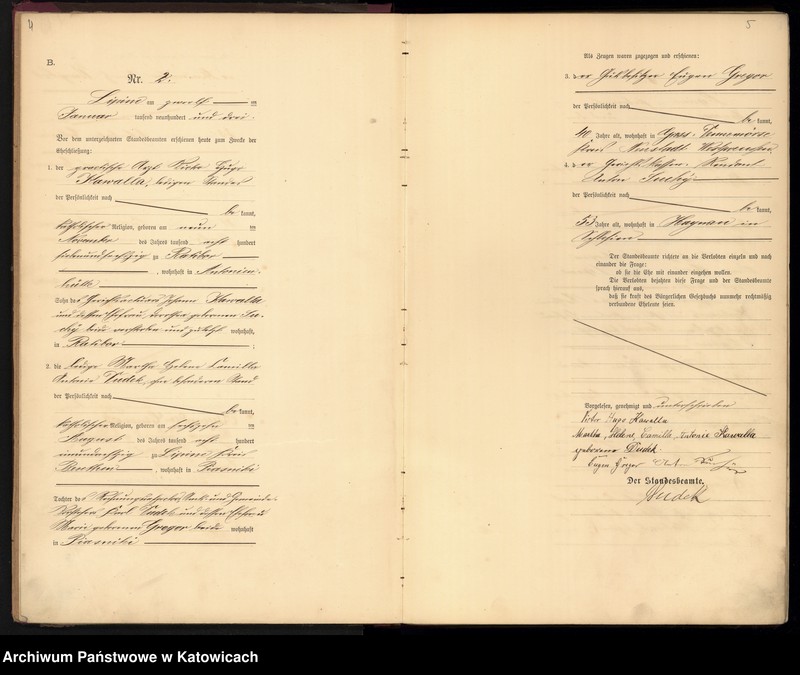 4
B.
Nr. 2.
Lipine am zwölften
Januar tausend neunhundert und drei.
Vor dem unterzeichneten Standesbeamten erschienen heute zum Zwecke der
Eheschließung:
1. der praktische Arzt Victor Hugo
Kawalla, ledigen Standes
der Persönlichkeit nach
be kannt,
katholischer Religion, geboren am neunten
November des Jahres tausend acht hundert
siebenundsechzig zu Ratibor
, wohnhaft in Antonien-
hütte
Sohn des Johann Kawalla
und dessen Ehefrau, geborenen
beide verstorben und zuletzt wohnhaft,
in Ratibor ;
2. die ledige Martha Helene Camilla
Antonie Dudek, ohne besonderen Stand
der Persönlichkeit nach
be kannt,
katholischer Religion, geboren am
August des Jahres tausend acht hundert
zu Lipine Kreis
Beuthen , wohnhaft in Piasniki
Tochter des und Gemeinde-
vorstehers Karl Dudek und dessen Ehefrau
Marie geborenen Gregor beide wohnhaft
in Piasniki
5
Als Zeugen waren zugezogen und erschienen:
3. der Gutsbesitzer Eugen Gregor
der Persönlichkeit nach
be kannt,
40 Jahre alt, wohnhaft in
Kreis Neustadt Westpreussen
4. der Rendant
Anton
der Persönlichkeit nach
be kannt,
53 Jahre alt, wohnhaft in Haynau in
Schlesien
Der Standesbeamte richtete an die Verlobten einzeln und nach
einander die Frage:
ob sie die Ehe mit einander eingehen wollen.
Die Verlobten bejahten diese Frage und der Standesbeamte
sprach hierauf aus,
daß sie kraft des Bürgerlichen Gesetzbuchs nunmehr rechtmäßig
verbundene Eheleute seien.
Vorgelesen, genehmigt und unterschrieben
Victor Hugo Kawalla
Martha, Helene, Camilla, Antonie Kawalla
geborene Dudek
Eugen Gregor
Der Standesbeamte.
Dudek
Archiwum Państwowe w Katowicach